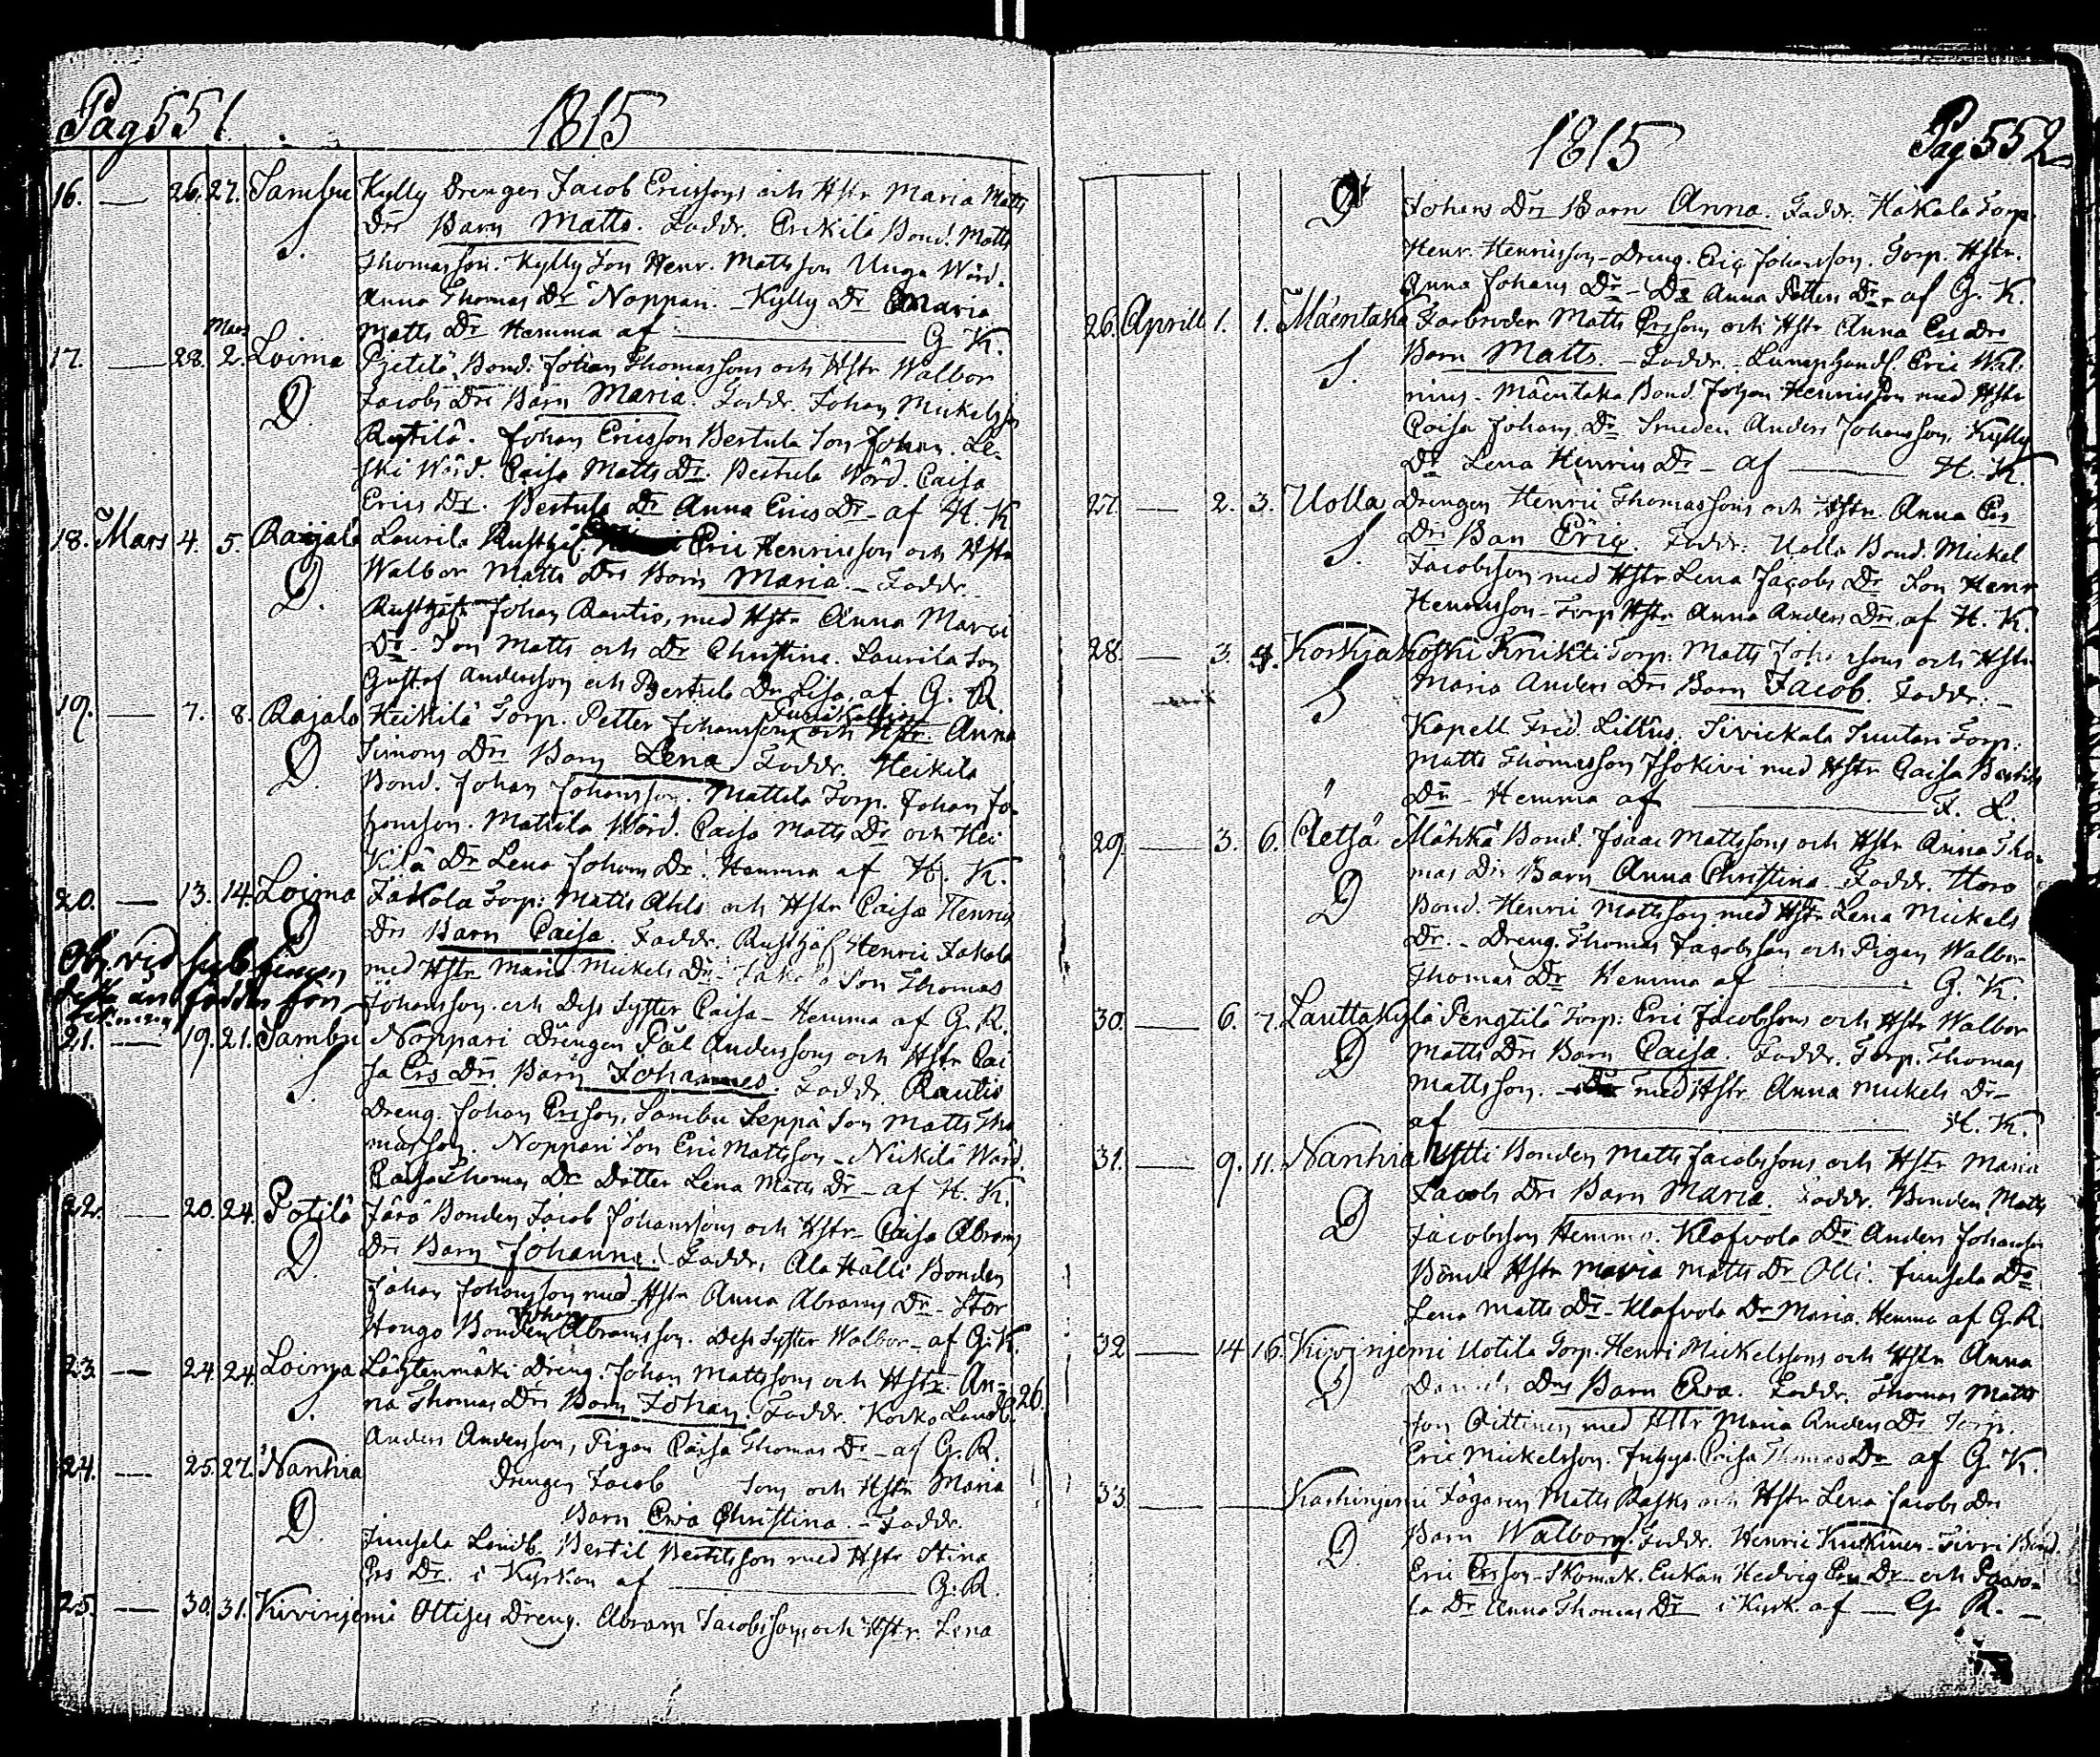 Pag 551
1815
16. — 26. 27. Sambu Kylly Drengen Jacob Ericssons och Hstr Maria Matts
S. Drs Barn Matts. Faddr. Erikilä Bond. Matts
Thomasson. Kylly Son Henr. Mattsson Unga Wärd.
Anna Thomas Dr Noppari. - Kylly Dr Maria
Matts Dr Hemma af — G. K.
Mars
17. — 28. 2. Loima Pietilä Bond: Johan Thomassons och Hstr Walbor
D. Jacobs Drs Barn Maria. Faddr. Johan Mickelsson
Johan Ericsson Bertula Son Johan. Le-
ski Wärd. Caisa Matts Dr. Bertula Wärd. Caisa
Erics Dr. Bertula Dr Anna Erics Dr - af H. K.
18. Mars 4. 5. Raijala Laurila Rusthåll. Eric Henricsson och Hstr
D. Walbor Matts Drs Barn Maria. - Faddr.
Rusthåll. Johan Rautio, med Hstr Anna Marci
Dr. Son Matts och Dr Christina. Laurila Son
Gustaf Andersson och Bertula Dr Lisa, af G. R.
19. — 7. 8. Rajala Keikilä Torp. Petter Johanssons och Hstr. Anna
D. Simons Drs Barn Lena Faddr. Heikilä
Bond. Johan Johansson. Mattila Torp. Johan Jo-
hansson. Mattila Wärd. Caisa Matts Dr och Hei
kilä Dr Lena Johans Dr. Hemma af H. K.
20. — 13. 14. Loima Jakola Torp: Matts Ahls och Hstr Caisa Henrics
D Drs Barn Caisa Faddr. Rusthåll Henric Jakola
med Hstr Maria Mickels Dr - Jakola Son Thomas
Johansson och Dess Syster Caisa - Hemma af G. R.
21. — 19. 21. Sambu Noppari Drengen Pål Anderssons och Hstr Cai
S. sa Ers Drs Barn Johannes. Faddr. Rautio
Dreng. Johan Ersson, Sambu Seppä Son Matts Tho
masson. Noppari Son Eric Mattsson - Nickilä Wärd.
Caisa Thomas Dr Dotter Lena Matts Dr - af H. K.
22. — 20. 24. Potilä Järä Bonden Jacob Johanssons och Hstr Caisa Abrams
D. Drs Barn Johanna. Faddr. Ala Hälli Bonden
Johan Johansson med Hstr Anna Abrams Dr - Stor
Johan
Hongo Bonden Abramsson. Dess Syster Walbor - af G. K.
23. — 24. 24. Loima Lähtenmäki Dreng. Johan Mattssons och Hstr. An-
S. na Thomas Drs Barn Johan. Faddr. Korko Landb. 26.
Anders Andersson, Pigan Caisa Thomas Dr - af G. R.
24. — 25. 27. Nanhia Drengen Jacob sons och Hstr Maria
D. Barn Ewa Christina. - Faddr.
Juusela Landb. Bertil Bertilsson med Hstr Stina
Ers Dr. i Kyrkan af — G. R.
25. — 30. 31. Kivinjemi Dreng. Abram Jacobssons och Hstr. Lena
1815
Pag 552
D Johans Drs Barn Anna. Faddr. Hakala Torp.
Henr. Henricsson - Dreng. Eric Johansson. Torp. Hstr.
Anna Johans Dr - Dr Anna Petters Dr - af G. K.
26. Aprill 1. 1. Mäentaka Farbroder Matts Erssons och Hstr Anna Ers Drs
S. Barn Matts. - Faddr. - Lumphandl. Eric Wal-
nius - Mäentaka Bond. Johan Henricsson med Hstr
Caisa Johans Dr Smeden Anders Johansson, Kylly
Dr Lena Henrics Dr - af — H. K.
27. — 2. 3. Uolla Drengen Henric Thomassons och Hstr. Anna Ers
S. Drs Barn Eric. Faddr: Uolla Bond. Mickel
Jacobsson med Hstr Lena Jacobs Dr Son Henr
Henricsson - Torp. Hstr Anna Anders Dr, af H. K.
28. — 3. 4. Korkiakoski Knikti Torp. Matts Johanssons och Hstr
S Maria Anders Drs Barn Jacob. Faddr: -
Kapell. Fred. Lillus. Sivickala Suutari Torp:
Matts Thomasson Isokivi med Hstr Caisa Bertils
Dr - Hemma af — F. L.
29. — 3. 6. Äetsä Mähkä Bond. Isaac Mattssons och Hstr Anna Tho-
D mas Drs Barn Anna Christina. Faddr. Horo
Bond. Henric Mattsson med Hstr Lena Mickels
Dr. - Dreng. Thomas Jacobsson och Pigan Walbor
Thomas Dr Hemma af — G. K.
30. — 6. 7. Lauttakylä Pengtilä Torp: Eric Jacobssons och Hstr Walbor
D Matts Drs Barn Caisa. Faddr. Torp. Thomas
Mattsson. - med Hstr Anna Mickels Dr -
af — H. K.
31. — 9. 11. Nanhia Ytti Bonden Matts Jacobssons och Hstr Maria
D Jacobs Drs Barn Maria. Faddr. Bonden Matts
Jacobsson Hemma. Klafvola Dr Anders Johansson
Bonde Hstr Maria Matts Dr Olli. Juusela Dr
Lena Matts Dr - Klafvola Dr Maria. Hemma af G. R.
32 — 14 16. Kivinjemi Uotila Torp. Henric Mickelssons och Hstr Anna
D Drs Barn Ewa. Faddr. Thomas Matts
son Oittinen med Hstr Maria Anders Dr Torp.
Eric Mickelsson. Caisa Thomas Dr af G. K.
33. — Karhinjemi Jägaren Matts Rasks och Hstr Lena Jacobs Drs
D Barn Walborg. Faddr. Henric Kuckinen - Sirri Bond.
Eric Ersson - Skomak. Enkan Hedvig Ers Dr - och Pawo-
la Dr Anna Thomas Dr i Kyrk. af — G. R. -